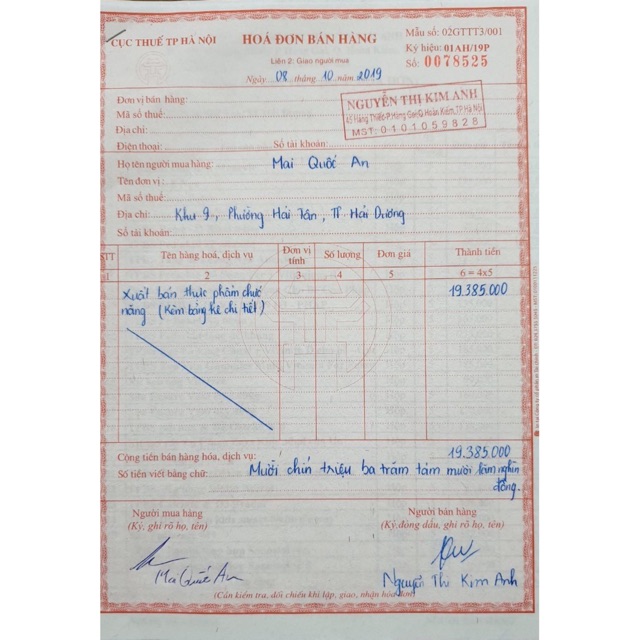 CỤC THUẾ TP HÀ NỘI
HOÁ ĐƠN BÁN HÀNG
Liên 2: Giao người mua
Ngày 08 tháng 10 năm 2019
Mẫu số: 02GTTT3/001
Ký hiệu: 01AH/19P
Số: 0078525
Đơn vị bán hàng:
Mã số thuế:
Địa chỉ:
Điện thoại: Số tài khoản:
NGUYỄN THỊ KIM ANH
45 Hàng Thiếc-P.Hàng Gai-Q.Hoàn Kiếm,TP.Hà Nội
MST: 0101059828
Họ tên người mua hàng: Mai Quốc An
Tên đơn vị:
Mã số thuế:
Địa chỉ: Khu 9, Phường Hải Tân, TP Hải Dương
Số tài khoản:
STT Tên hàng hoá, dịch vụ Đơn vị tính Số lượng Đơn giá Thành tiền
1 2 3 4 5 6 = 4x5
Xuất bán thực phẩm chức 19.385.000
năng (Kèm bảng kê chi tiết)
Cộng tiền bán hàng hóa, dịch vụ: 19.385.000
Số tiền viết bằng chữ: Mười chín triệu ba trăm tám mươi lăm nghìn
đồng.
Người mua hàng Người bán hàng
(Ký, ghi rõ họ, tên) (Ký,đóng dấu, ghi rõ họ, tên)
Mai Quốc An Nguyễn Thị Kim Anh
(Cần kiểm tra, đối chiếu khi lập, giao, nhận hóa đơn)